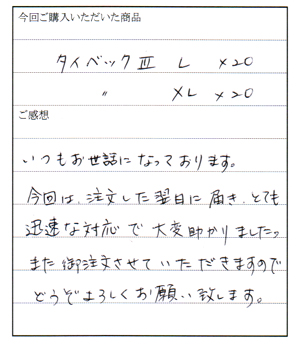 今回ご購入いただいた商品
タイベックⅢ L ×20
〃 XL ×20
ご感想
いつもお世話になっております。
今回は、注文した翌日に届き、とても
迅速な対応で大変助かりましたっ
また御注文させていただきますので
どうぞよろしくお願い致します。